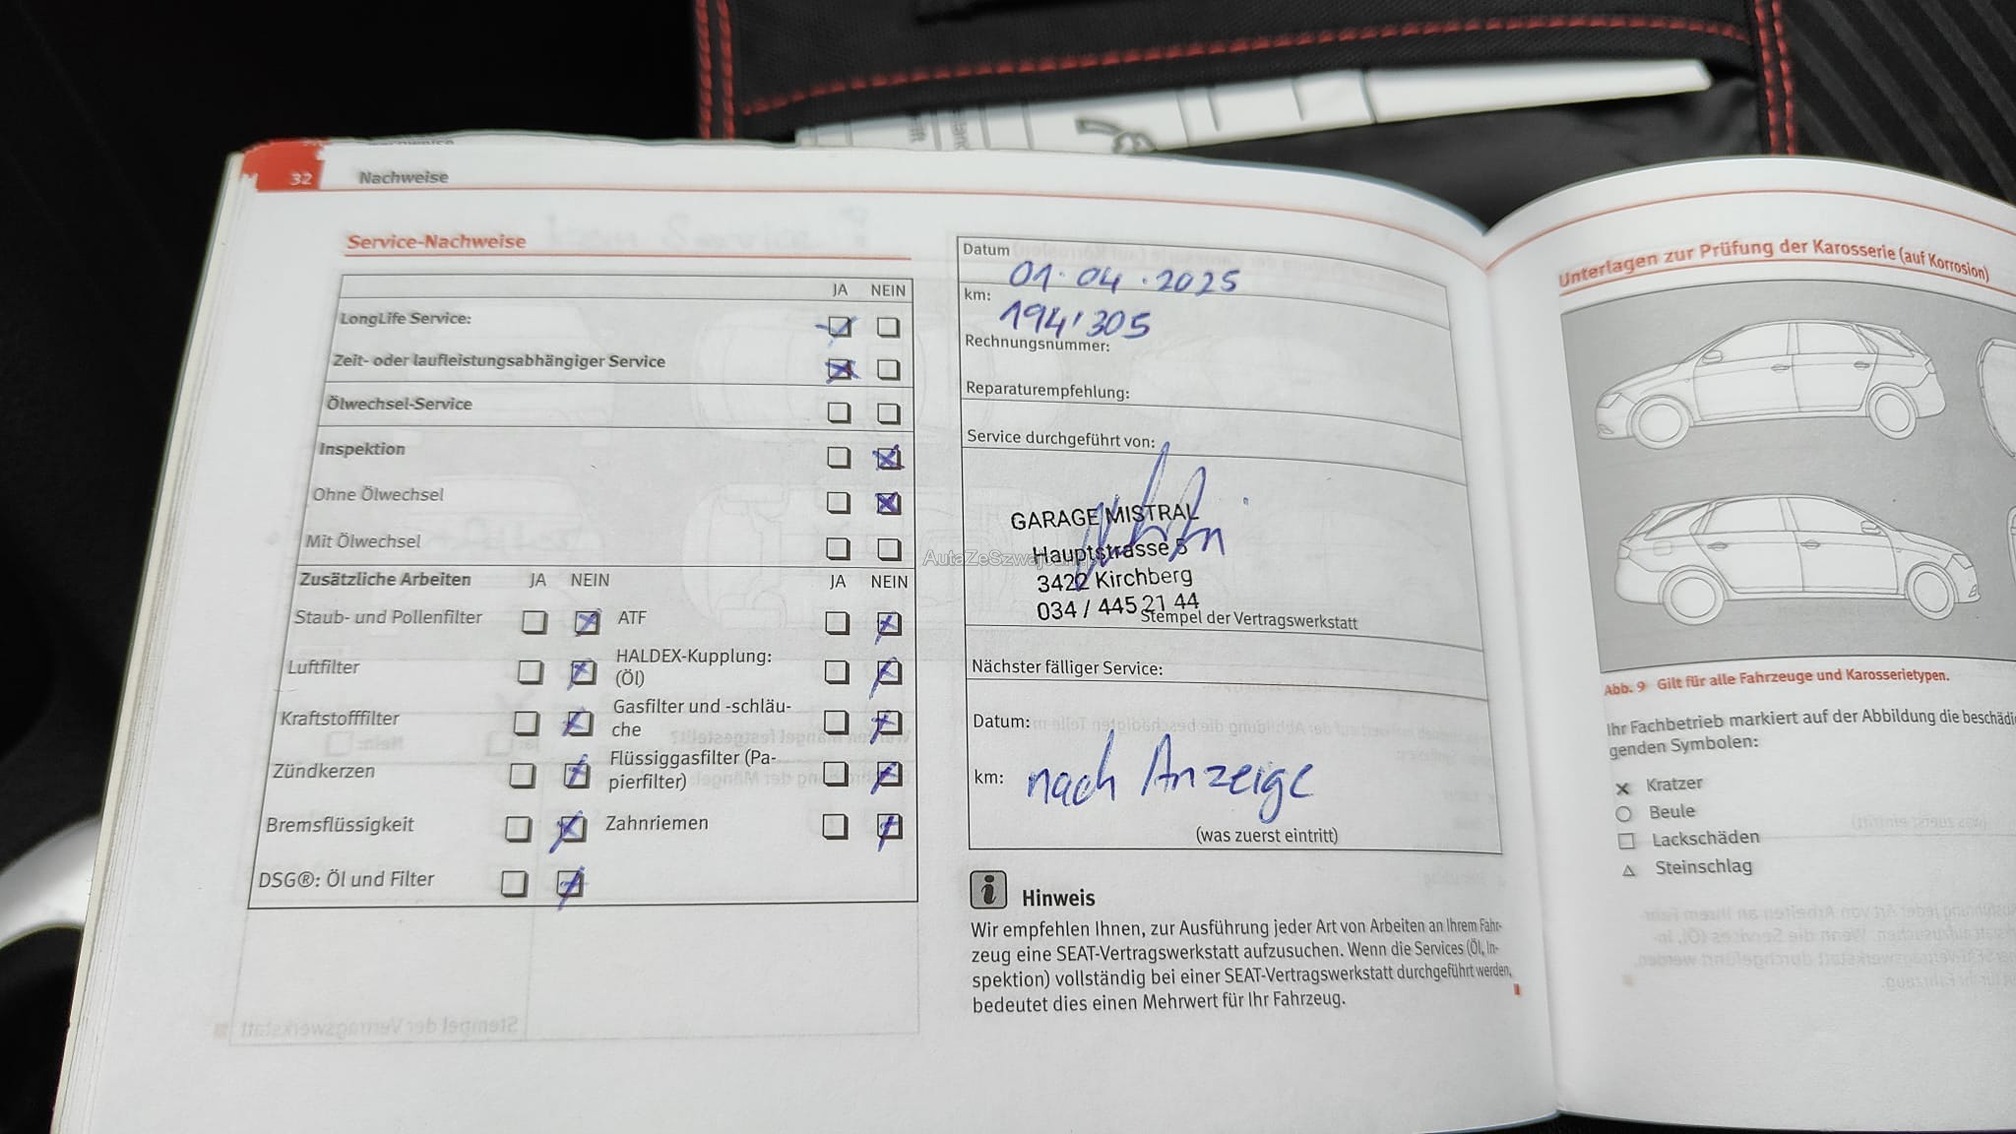 32 Nachweise
Service-Nachweise
JA NEIN
LongLife Service:
Zeit- oder laufleistungsabhängiger Service
Ölwechsel-Service
Inspektion
Ohne Ölwechsel
Mit Ölwechsel
Zusätzliche Arbeiten JA NEIN JA NEIN
Staub- und Pollenfilter ATF
Luftfilter HALDEX-Kupplung:
(Öl)
Kraftstofffilter Gasfilter und -schläu-
che
Zündkerzen Flüssiggasfilter (Pa-
pierfilter)
Bremsflüssigkeit Zahnriemen
DSG®: Öl und Filter
Stempel der Vertragswerkstatt
Datum
01.04.2025
km:
194'305
Rechnungsnummer:
Reparaturempfehlung:
Service durchgeführt von:
GARAGE MISTRAL
Hauptstrasse 5
3422 Kirchberg
034 / 445 21 44
Stempel der Vertragswerkstatt
Nächster fälliger Service:
Datum:
km: nach Anzeige
(was zuerst eintritt)
Hinweis
Wir empfehlen Ihnen, zur Ausführung jeder Art von Arbeiten an Ihrem Fahr-
zeug eine SEAT-Vertragswerkstatt aufzusuchen. Wenn die Services (Öl, In-
spektion) vollständig bei einer SEAT-Vertragswerkstatt durchgeführt werden,
bedeutet dies einen Mehrwert für Ihr Fahrzeug.
Unterlagen zur Prüfung der Karosserie (auf Korrosion)
Abb. 9 Gilt für alle Fahrzeuge und Karosserietypen.
Ihr Fachbetrieb markiert auf der Abbildung die
genden Symbolen:
× Kratzer
○ Beule
□ Lackschäden
△ Steinschlag